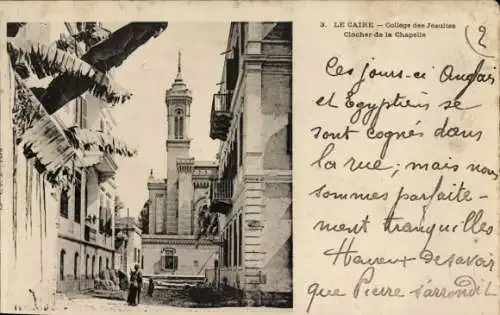 3. LE CAIRE – College des Jésuites
Clocher de la Chapelle
(2
Ces jours-ci Anglais
et Egyptiens se
sont cognés dans
la rue; mais nous
sommes parfaite-
ment tranquilles
Heureux de savoir
que Pierre s'arrondit.